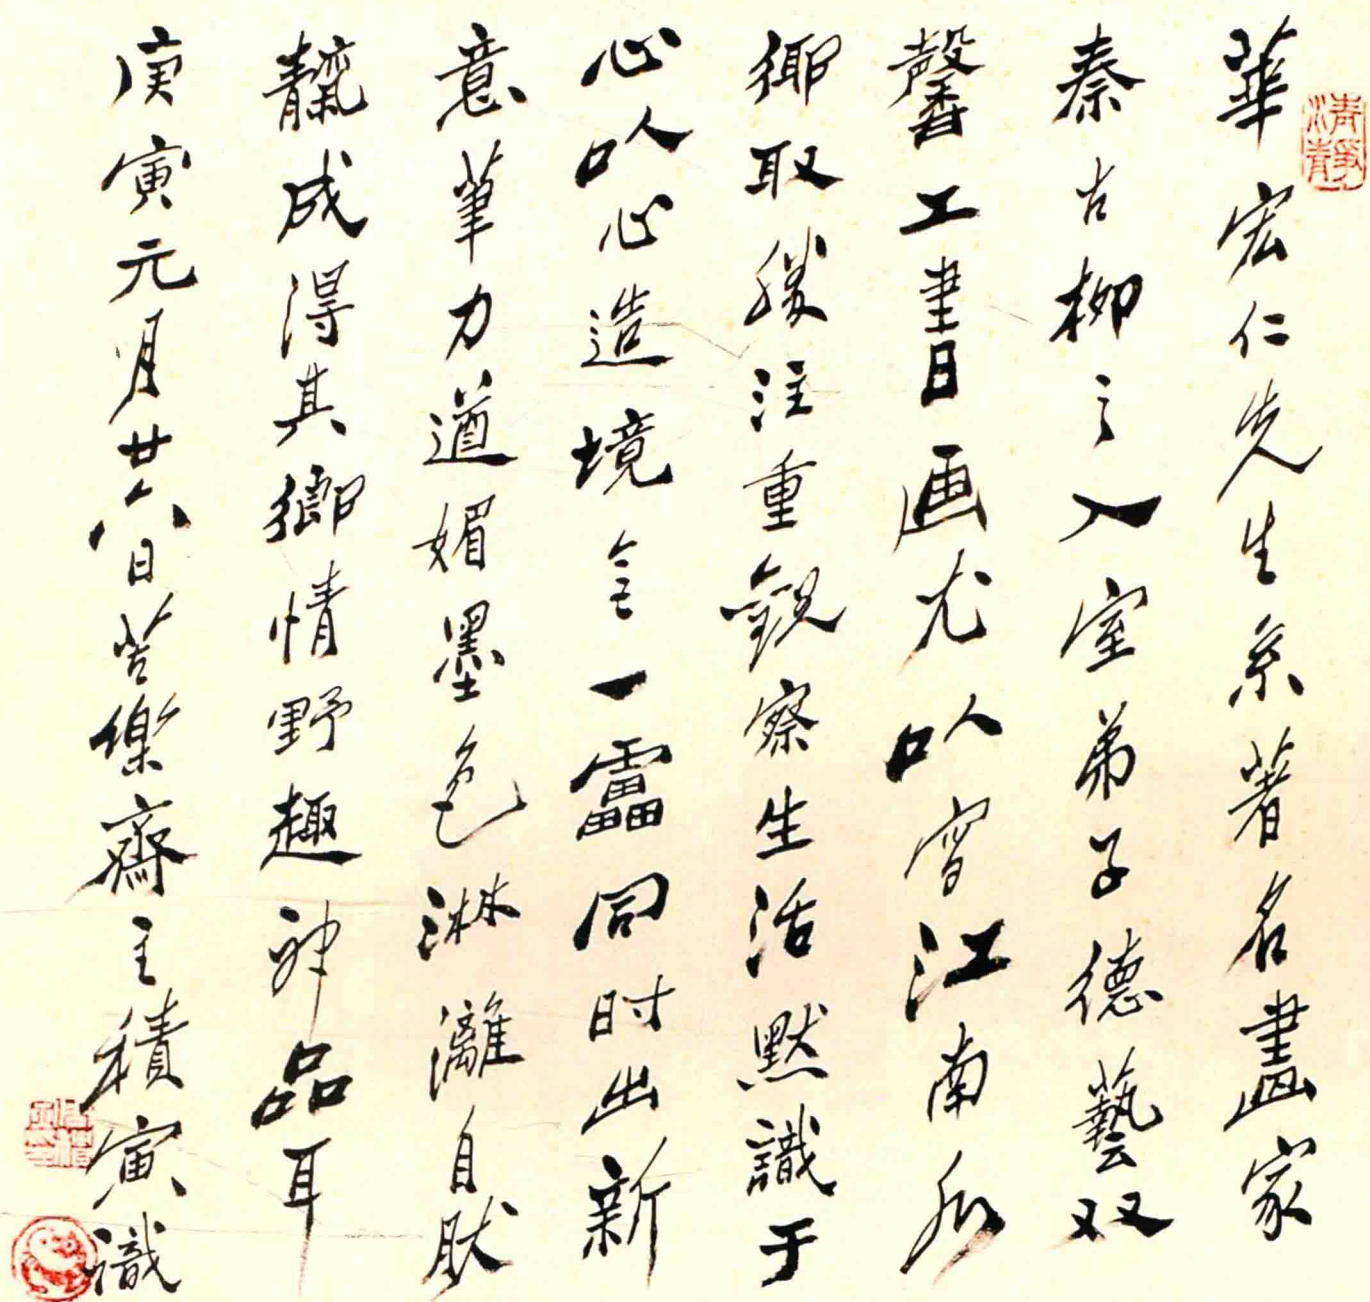 清靜
華宏仁先生系著名畫家
秦古柳之入室弟子德藝双
馨工書画尤以写江南水
鄉取勝注重觀察生活默識于
心以心造境無一靁同时出新
意筆力遒媚墨色淋漓自肰
靝成得其鄉情野趣神品耳
庚寅元月廿六日苦樂齋主積寅識